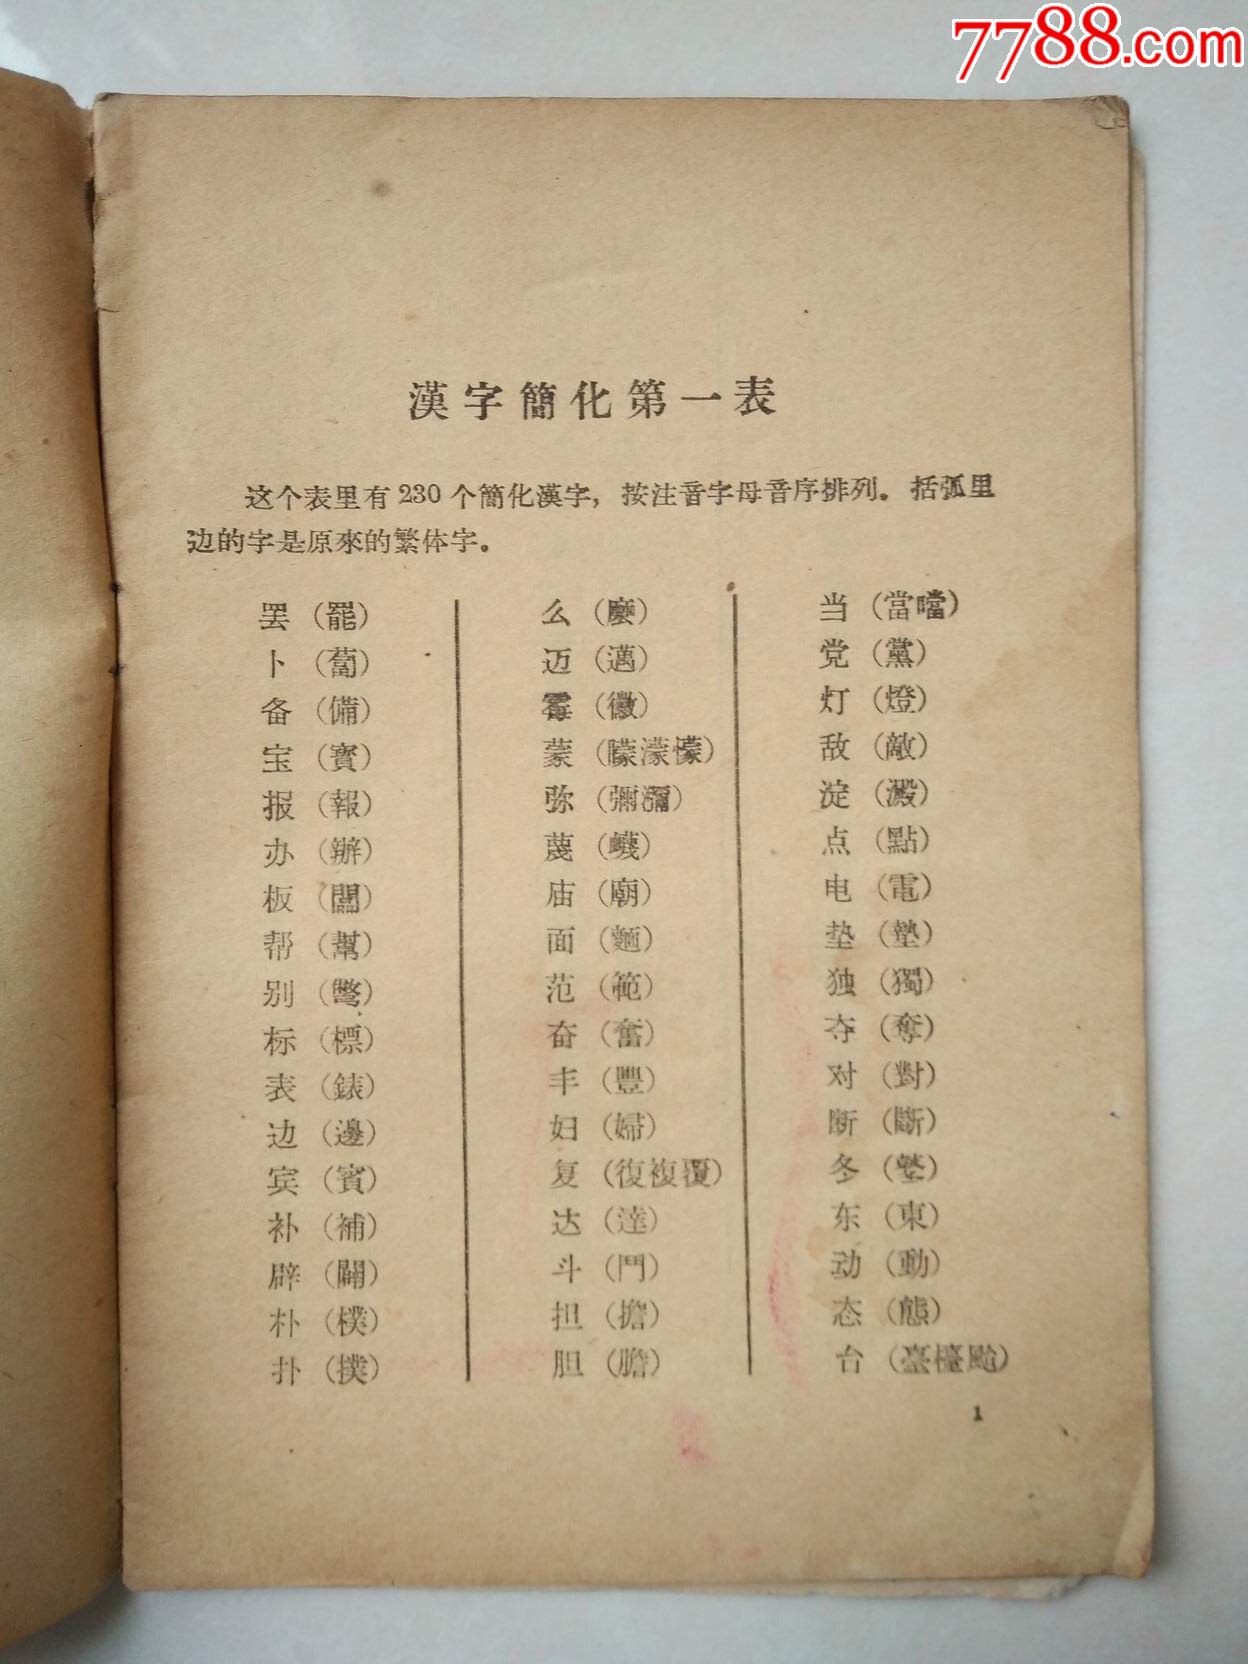 7788.com
漢字簡化第一表
这个表里有230个簡化漢字，按注音字母音序排列。括弧里
边的字是原來的繁体字。
罢（罷）
卜（蔔）
备（備）
宝（寶）
报（報）
办（辦）
板（闆）
帮（幫）
别（彆）
标（標）
表（錶）
边（邊）
宾（賓）
补（補）
辟（闢）
朴（樸）
扑（撲）
么（麼）
迈（邁）
霉（黴）
蒙（矇濛懞）
弥（彌瀰）
蔑（衊）
庙（廟）
面（麵）
范（範）
奋（奮）
丰（豐）
妇（婦）
复（復複覆）
达（達）
斗（鬥）
担（擔）
胆（膽）
当（當噹）
党（黨）
灯（燈）
敌（敵）
淀（澱）
点（點）
电（電）
垫（墊）
独（獨）
夺（奪）
对（對）
断（斷）
冬（鼕）
东（東）
动（動）
态（態）
台（臺檯颱）
1